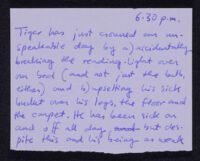 6.30 p.m.
Tiger has just crowned an un-
speakable day by a) accidentally
breaking the reading-light over
our bed (and not just the bulb,
either) and b) upsetting his sick
bucket over his legs, the floor and
the carpet. He has been sick on
and off all day but des-
pite this and his being as weak